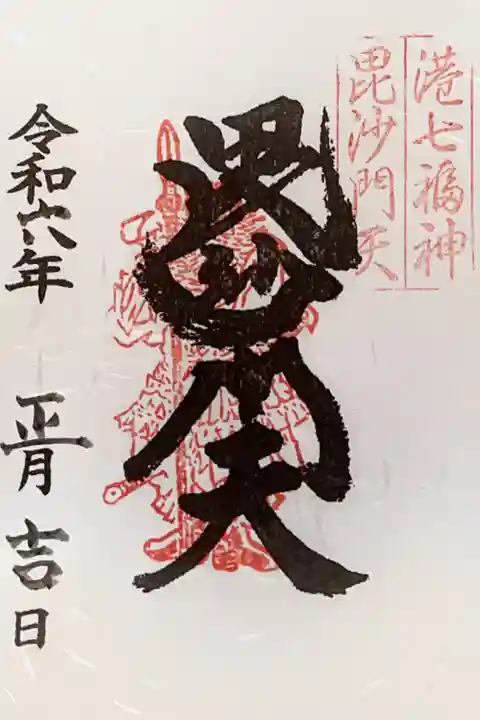 港七福神
毘沙門天
毘沙門天
令和六年
正月吉日